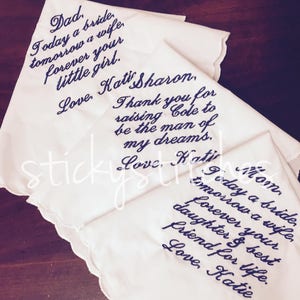 Dad,
Today a bride,
tomorrow a wife,
forever your
little girl.
Love, Katie
Sharon,
Thank you for
raising Cole to
be the man of
my dreams.
Love, Katie
Mom,
Today a bride,
tomorrow a wife,
forever your
daughter & best
friend for life.
Love, Katie
stickystitches